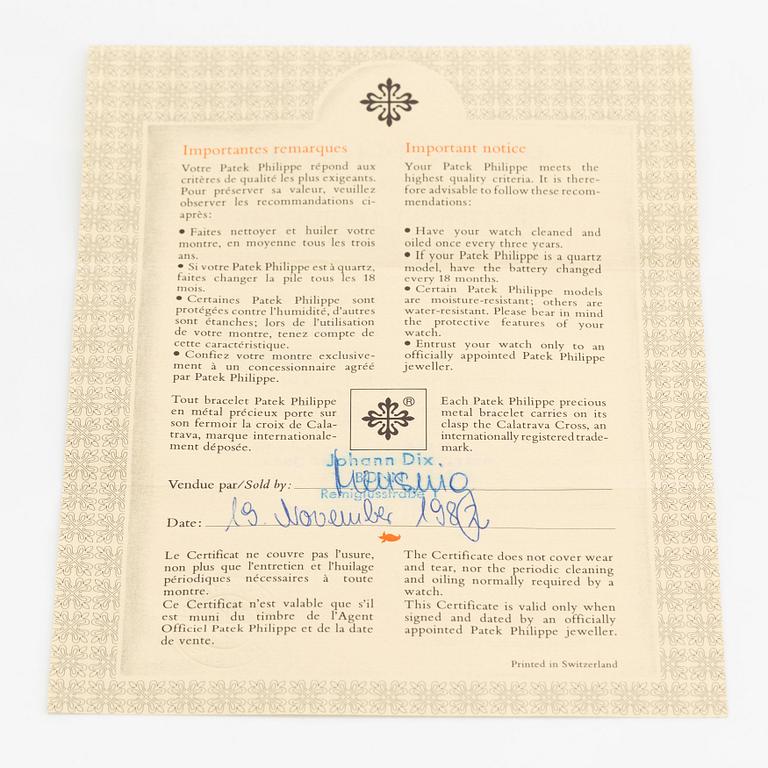 Importantes remarques
Votre Patek Philippe répond aux
critères de qualité les plus exigeants.
Pour préserver sa valeur, veuillez
observer les recommandations ci-
après:
• Faites nettoyer et huiler votre
montre, en moyenne tous les trois
ans.
• Si votre Patek Philippe est à quartz,
faites changer la pile tous les 18
mois.
• Certaines Patek Philippe sont
protégées contre l'humidité, d'autres
sont étanches; lors de l'utilisation
de votre montre, tenez compte de
cette caractéristique.
• Confiez votre montre exclusive-
ment à un concessionnaire agréé
par Patek Philippe.
Important notice
Your Patek Philippe meets the
highest quality criteria. It is there-
fore advisable to follow these recom-
mendations:
• Have your watch cleaned and
oiled once every three years.
• If your Patek Philippe is a quartz
model, have the battery changed
every 18 months.
• Certain Patek Philippe models
are moisture-resistant; others are
water-resistant. Please bear in mind
the protective features of your
watch.
• Entrust your watch only to an
officially appointed Patek Philippe
jeweller.
Tout bracelet Patek Philippe
en métal précieux porte sur
son fermoir la croix de Cala-
trava, marque internationale-
ment déposée.
®
Each Patek Philippe precious
metal bracelet carries on its
clasp the Calatrava Cross, an
internationally registered trade-
mark.
Johann Dix,
BONN
Vendue par/Sold by:
Remigiusstraße 1
Date: 19. November 1987
Le Certificat ne couvre pas l'usure,
non plus que l'entretien et l'huilage
périodiques nécessaires à toute
montre.
Ce Certificat n'est valable que s'il
est muni du timbre de l'Agent
Officiel Patek Philippe et de la date
de vente.
The Certificate does not cover wear
and tear, nor the periodic cleaning
and oiling normally required by a
watch.
This Certificate is valid only when
signed and dated by an officially
appointed Patek Philippe jeweller.
Printed in Switzerland